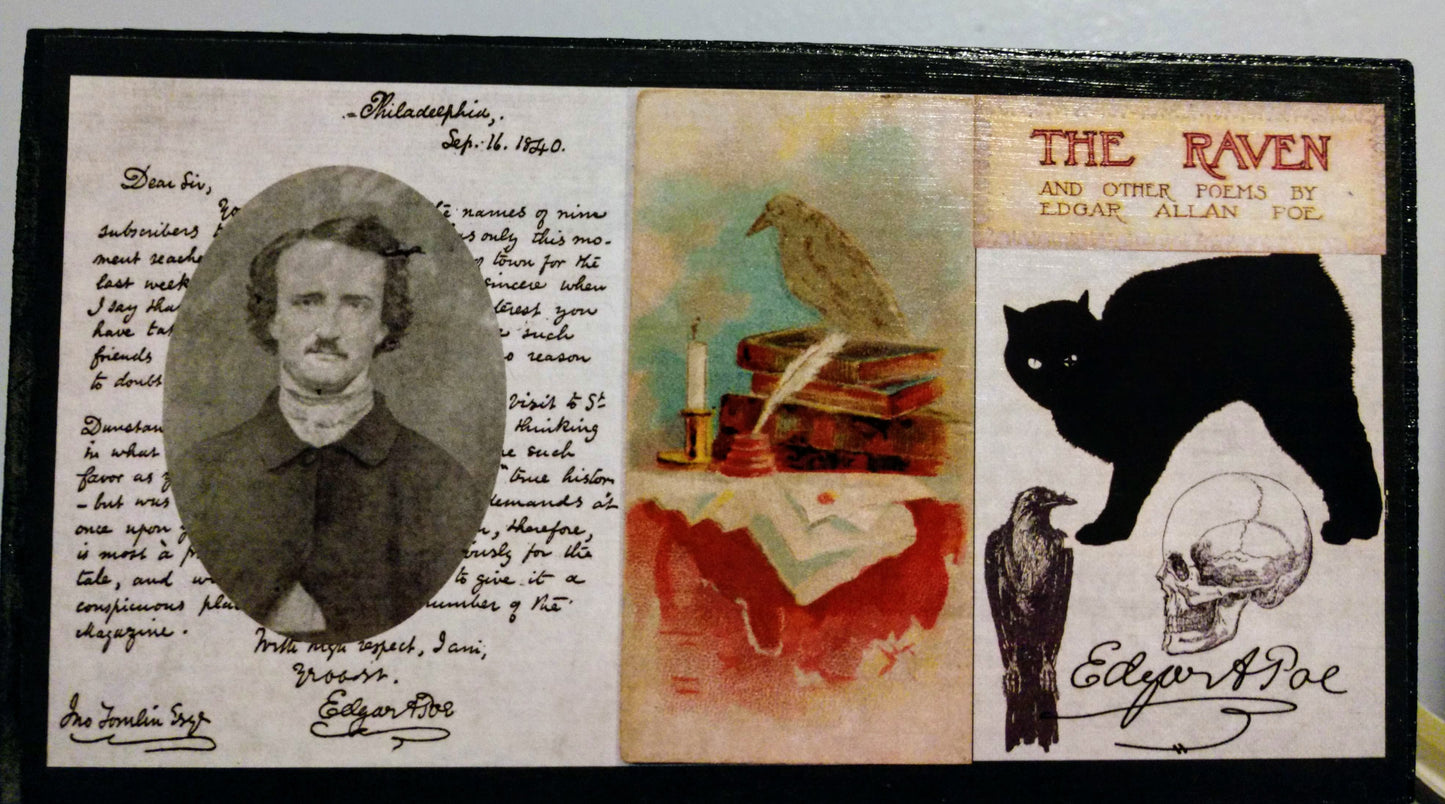 Philadelphia,
Sep. 16. 1840.
Dear Sir,
names of nine
subscribers
only this mo-
ment reache
town for the
last week
sincere when
I say tha
terest you
have ta
such
friends
reason
to doubt
visit to St
Dunstan
thinking
in what
such
favor as
"true histor
- but was
demands at
once upon
therefore,
is most à
ously for the
tale, and
to give it a
conspicuous pla
number of the
Magazine.
With high respect, I am,
Yr Obdt St.
Jno Tomlin Esqr
Edgar A Poe
THE RAVEN
AND OTHER POEMS BY
EDGAR ALLAN POE
Edgar A Poe